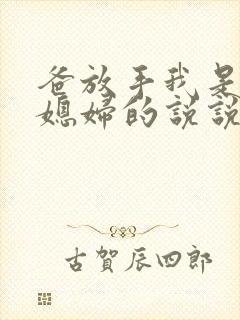 爸放手我是
媳妇的说说
古賀辰四郎